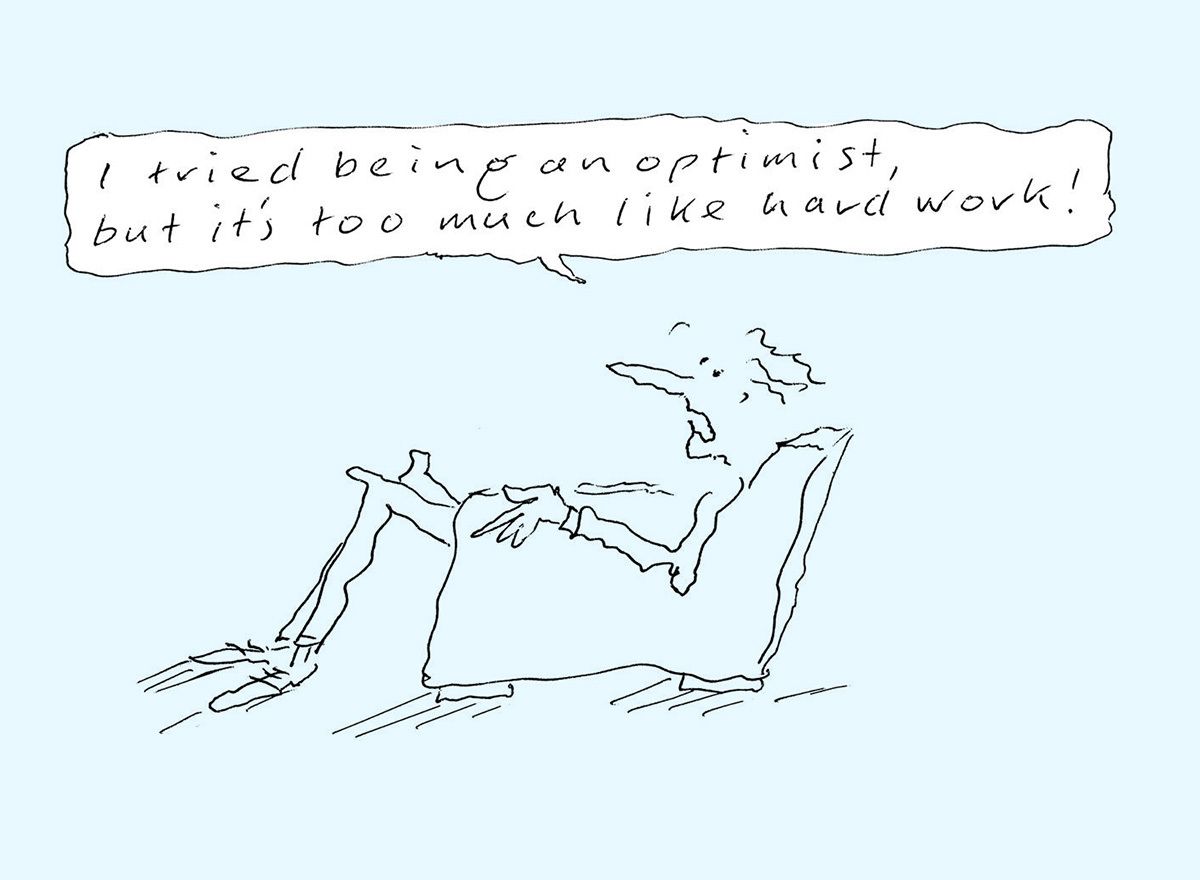 I tried being an optimist,
but it's too much like hard work!